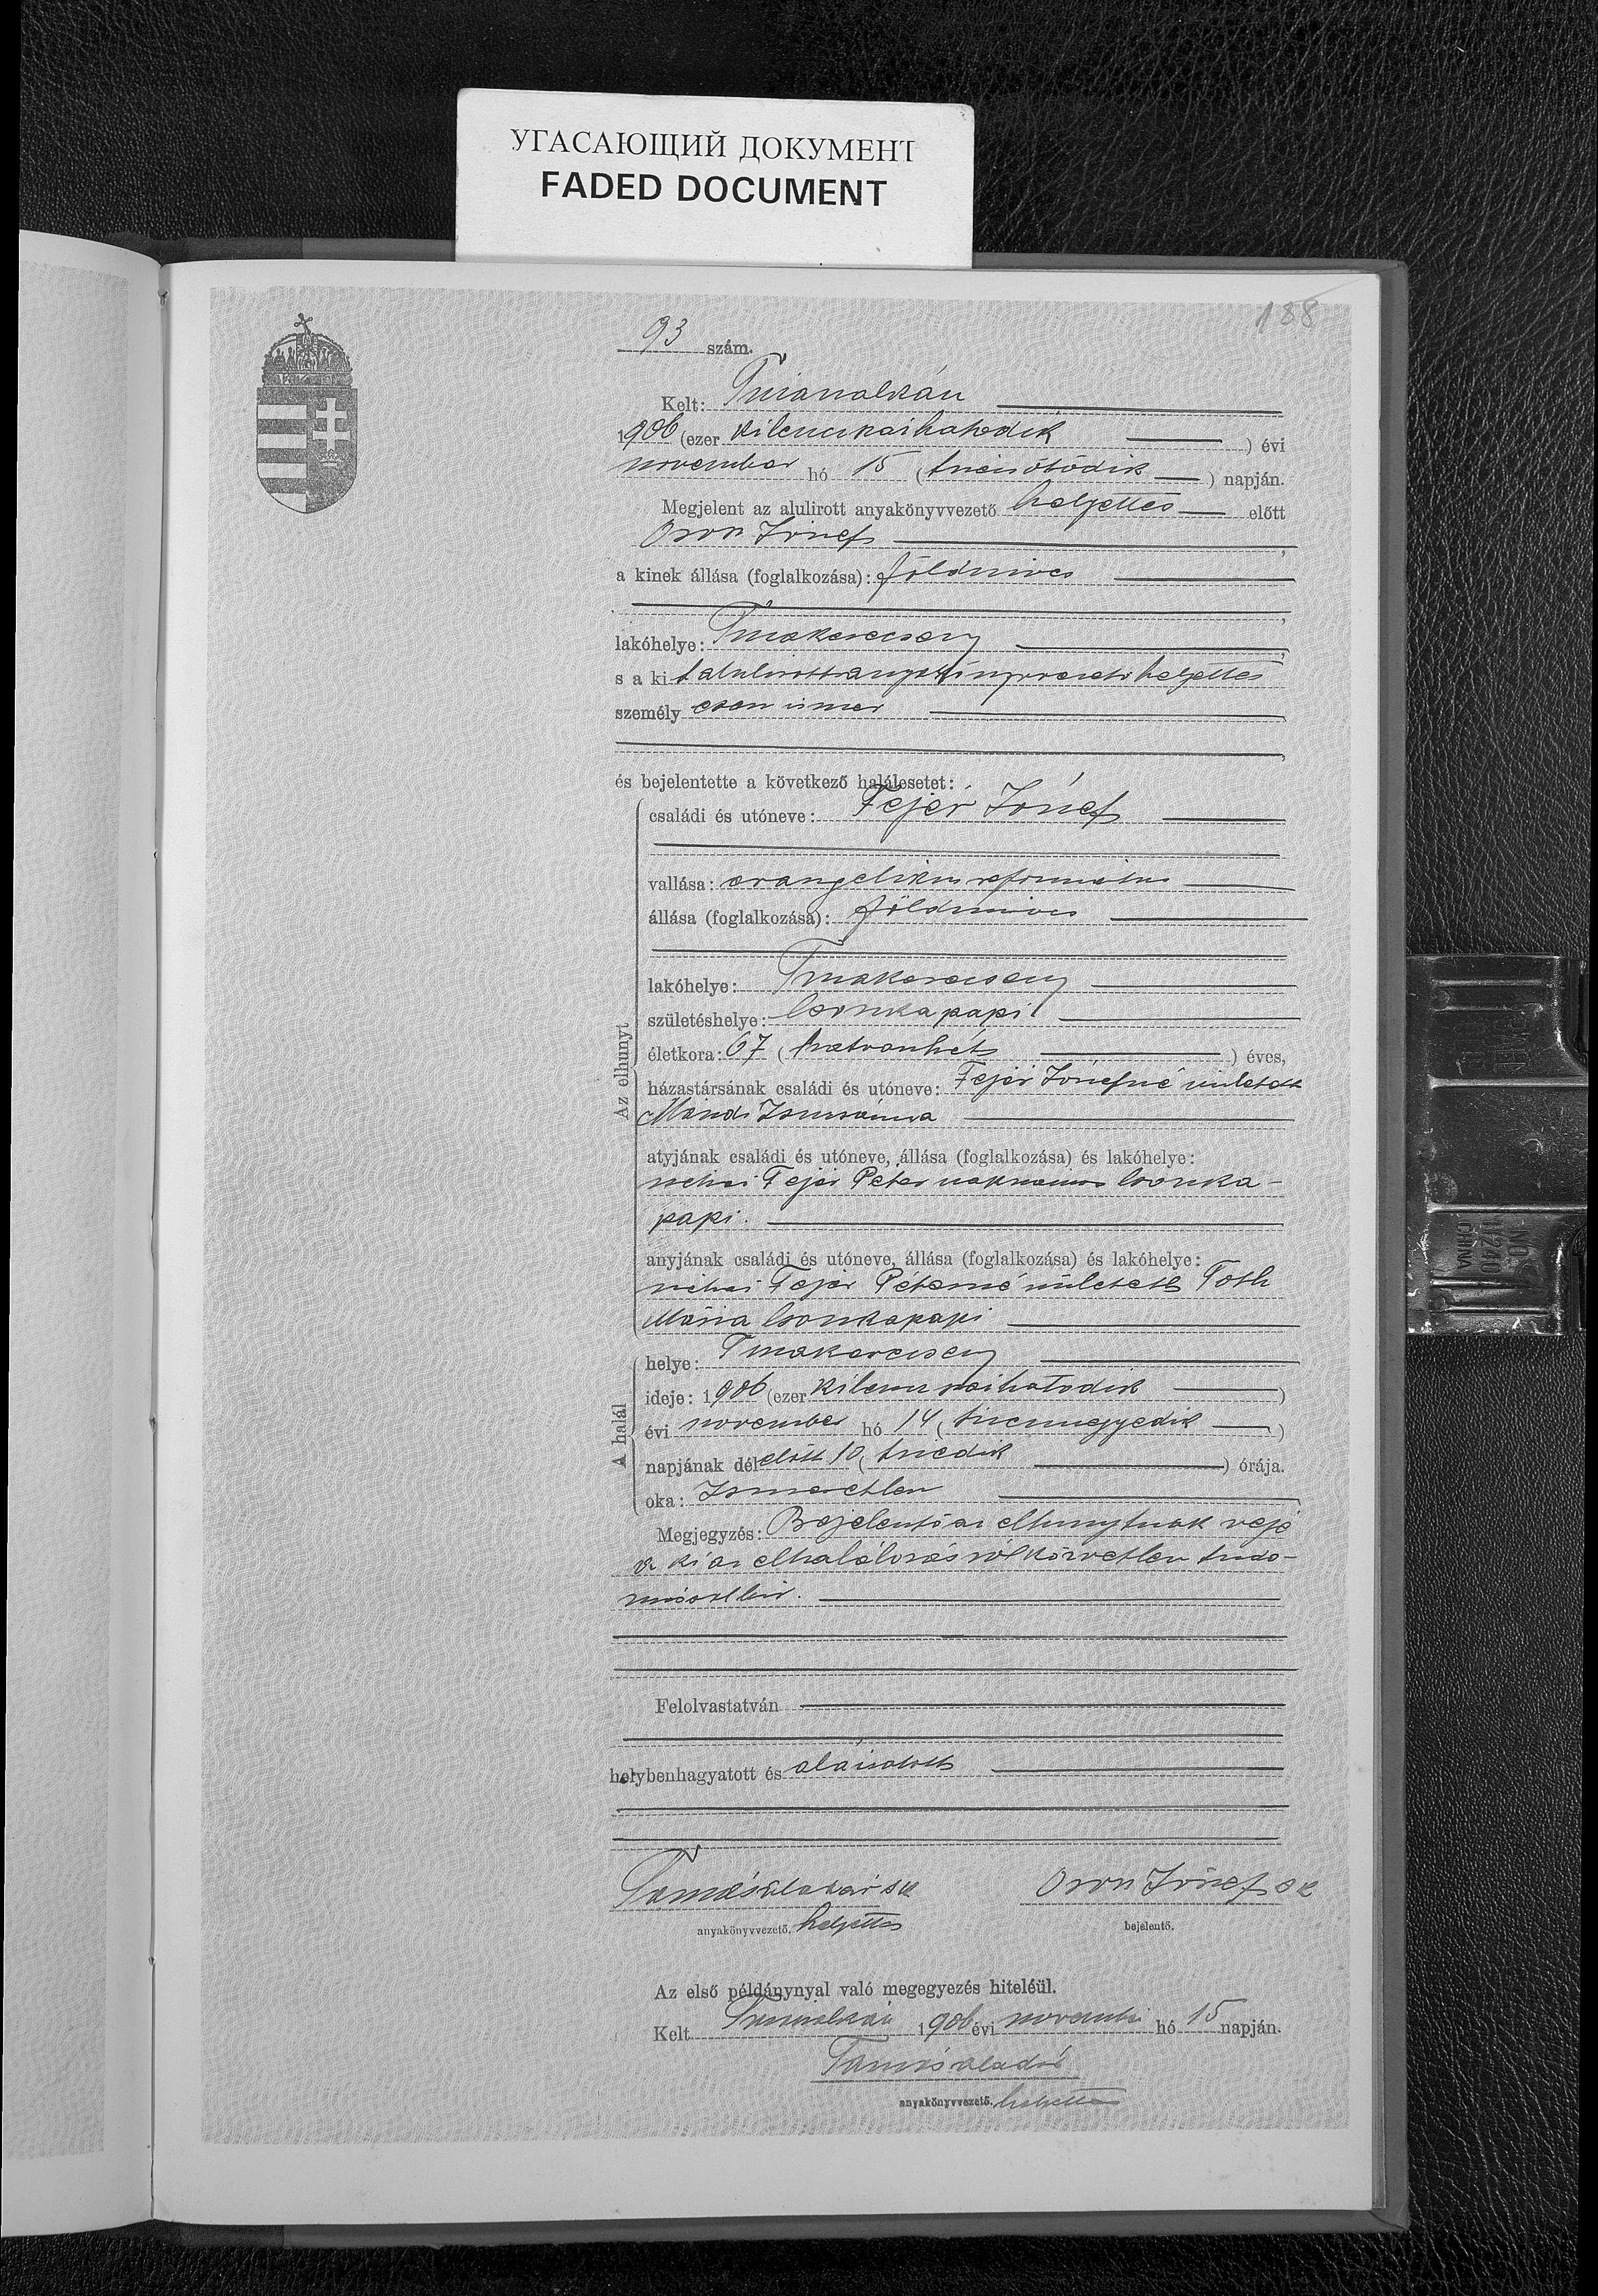 УГАСАЮЩИЙ ДОКУМЕНТ
FADED DOCUMENT
188
93 szám.
Kelt: Tiszaszalkán
1906 (ezer kilenczszázhatodik) évi
november hó 15 (tizenötödik) napján.
Megjelent az alulirott anyakönyvvezető helyettes előtt
Oros József,
a kinek állása (foglalkozása): földmives
,
lakóhelye: Tiszakerecseny,
s a kit alulirott anyakönyvvezető helyettes
személyesen ismer
,
és bejelentette a következő halálesetet:
Az elhunyt
családi és utóneve: Fejér József
vallása: evangelikus reformatus
állása (foglalkozása): földmives
lakóhelye: Tiszakerecseny
születéshelye: Csonkapapi
életkora: 67 (hatvanhét) éves,
házastársának családi és utóneve: Fejér Józsefné született
Mándi Zsuzsánna
atyjának családi és utóneve, állása (foglalkozása) és lakóhelye:
néhai Fejér Péter Csonka-
papi.
anyjának családi és utóneve, állása (foglalkozása) és lakóhelye:
néhai Fejér Péterné született Tóth
Mária Csonkapapi
A halál
helye: Tiszakerecseny
ideje: 1906 (ezer kilenczszázhatodik)
évi november hó 14 (tizennegyedik)
napjának délelőtt 10 (tizedik) órája.
oka: Ismeretlen
Megjegyzés: Bejelentő az elhunytnak veje
a ki az elhalálozásról közvetlen tudo-
mással bir.
Felolvastatván
helybenhagyatott és aláiratott
Tamás Aladár sk
Oros József sk
anyakönyvvezető. helyettes
bejelentő.
Az első példánynyal való megegyezés hiteléül.
Kelt Tiszaszalkán 1906 évi november hó 15 napján.
Tamás Aladár
anyakönyvvezető. helyettes